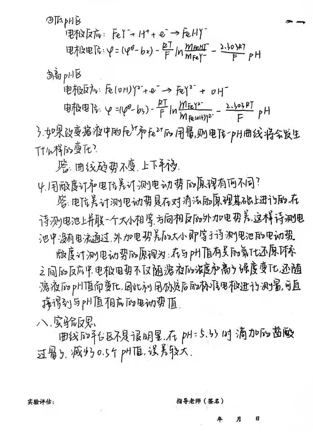 ②低pH区
电极反应: FeY⁻ + H⁺ + e⁻ → FeHY⁻
电极电位: φ = (φ⁰ - b₂) - RT/F ln m_FeHY⁻/m_FeY⁻ - 2.303RT/F pH
③高pH区
电极反应: Fe(OH)Y²⁻ + e⁻ → FeY²⁻ + OH⁻
电极电位: φ = (φ⁰ - b₃) - RT/F ln m_FeY²⁻/m_Fe(OH)Y²⁻ - 2.303RT/F pH
3. 如果改变溶液中的Fe³⁺和Fe²⁺的用量, 则电位-pH曲线将会发生
什么样的变化?
答: 曲线趋势不变, 上下平移.
4. 用酸度计和电位差计测电动势的原理有何不同?
答: 电位差计测电动势是在对消法的原理基础上进行的, 在
待测电池上并联一个大小相等方向相反的外加电势差, 这样待测电
池中没有电流通过, 外加电势差的大小即等于待测电池的电动势.
酸度计测电动势的原理为: 在与pH值有关的氧化还原体系
之间的反应中, 电极电势不仅随溶液的浓度和离子强度变化, 还随
溶液的pH值而变化, 因此
的标准电极进行测量, 可直
接得到与pH值相应的电动势值.
八. 实验反思
曲线的平台区不是很明显, 在pH=5.33时滴加的
过量了, 减少0.5个pH值, 误差较大.
实验评估: 指导老师(签名)
年 月 日